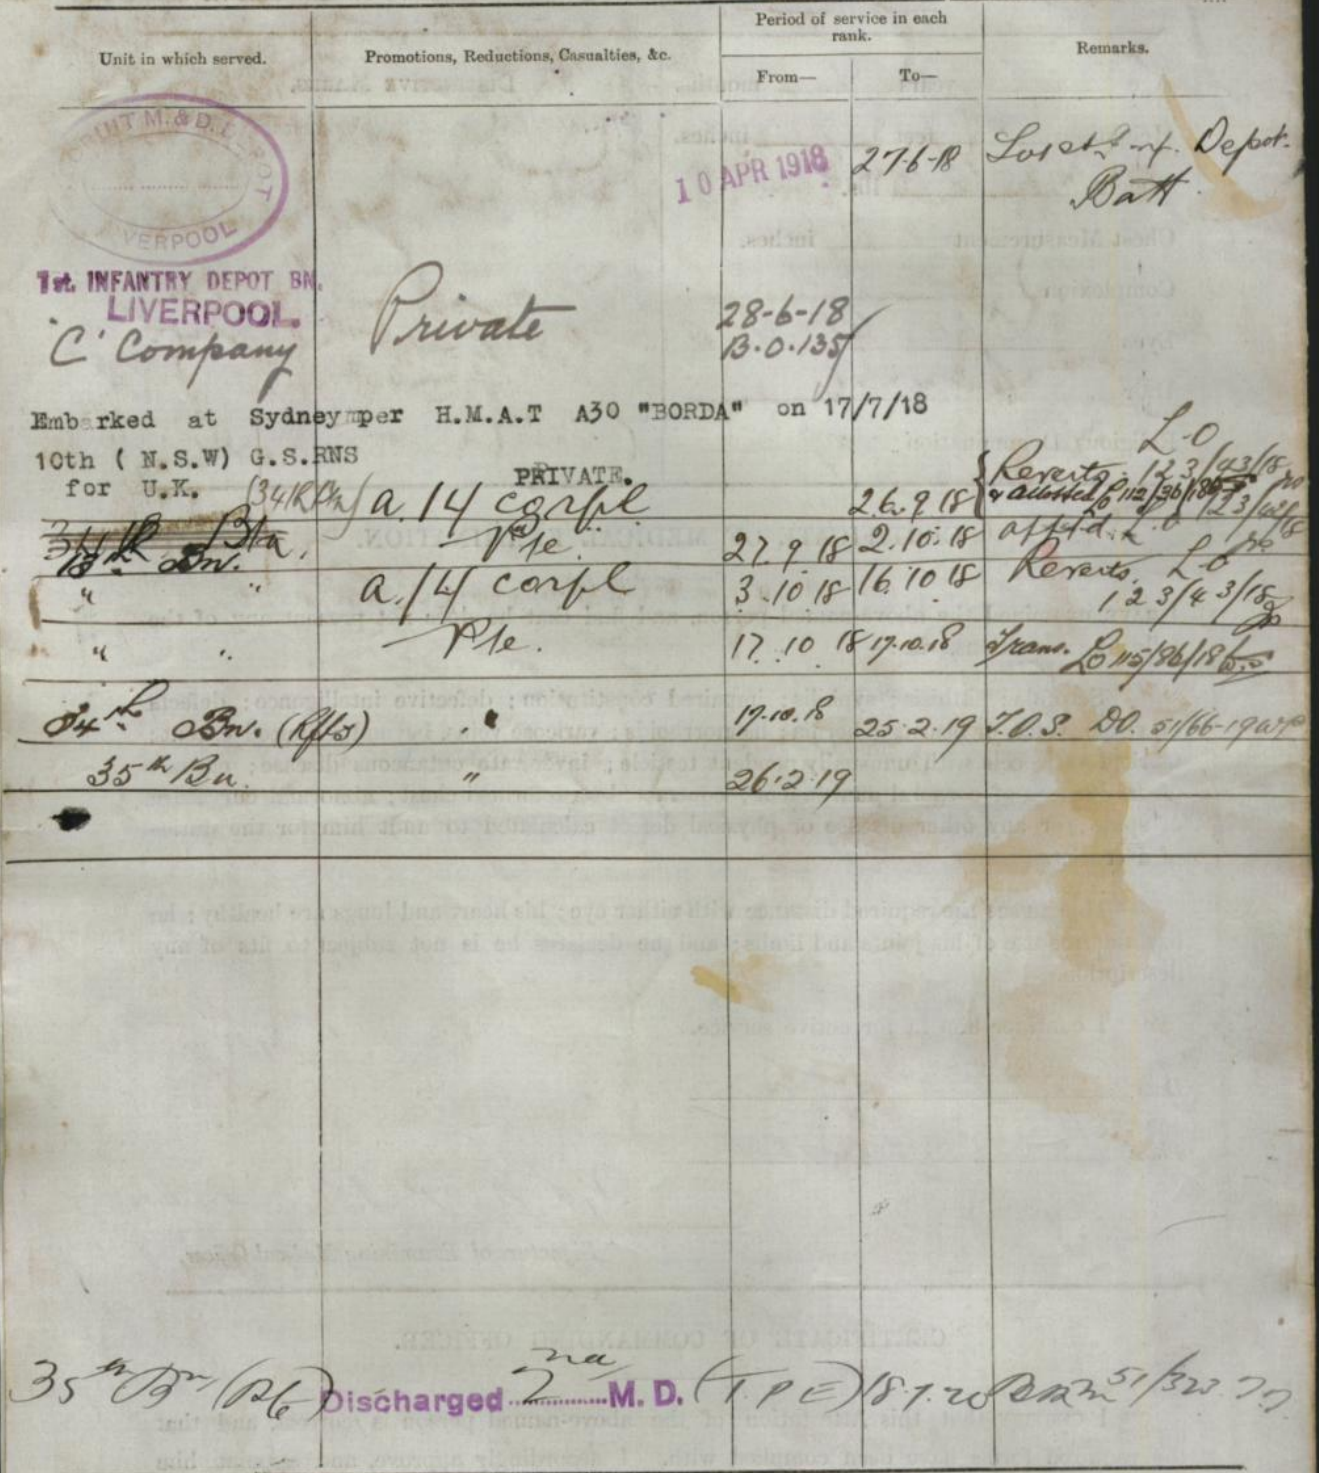 Unit in which served. Promotions, Reductions, Casualties, &c. Period of service in each rank. From— To— Remarks.
M. & D. DEPOT
LIVERPOOL
10 APR 1918 27-6-18 Depot.
Batt
1st. INFANTRY DEPOT BN.
LIVERPOOL.
'C' Company Private 28-6-18
B.O. 135/
Embarked at Sydney per H.M.A.T A30 "BORDA" on 17/7/18
10th (N.S.W) G.S.RNS PRIVATE. L.O
for U.K. a/4 corpl 26.9.18 Reverts. 123/43/18
34th Btn.
13th Bn. Pte. 27.9.18 2.10.18 L.O
" " a/4 corpl 3.10.18 16.10.18 Reverts. L.O
123/43/18
" " Pte. 17.10.18 17.10.18 Trans. LO 115/86/18
34th Bn. (Rfts) " 17.10.18 25.2.19 T.O.S. DO. 51/66-19
35th Bn. " 26.2.19
35th Bn Discharged 2nd M. D. (T.P.E) 18.7.20